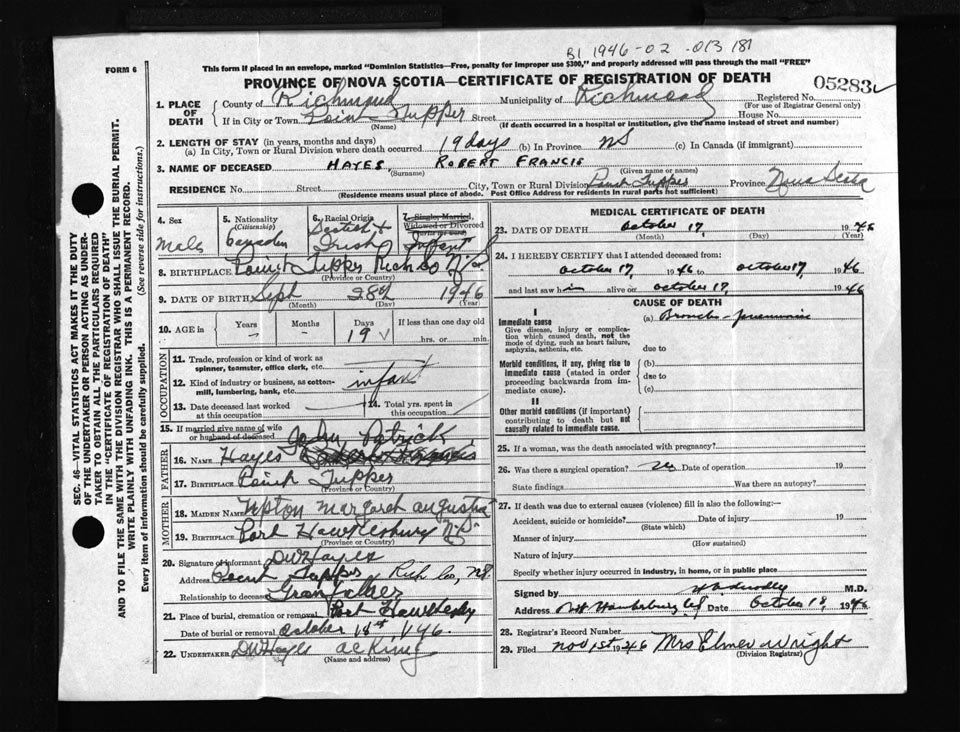 B1 1946-02-013181
FORM 6
This form if placed in an envelope, marked "Dominion Statistics—Free, penalty for improper use $300," and properly addressed will pass through the mail "FREE"
PROVINCE OF NOVA SCOTIA—CERTIFICATE OF REGISTRATION OF DEATH
05283
1. PLACE OF DEATH
County of Richmond Municipality of Richmond Registered No.
(For use of Registrar General only)
If in City or Town Point Tupper Street House No.
(Name) (If death occurred in a hospital or institution, give the name instead of street and number)
2. LENGTH OF STAY (in years, months and days)
(a) In City, Town or Rural Division where death occurred 19 days (b) In Province NS (c) In Canada (if immigrant)
3. NAME OF DECEASED HAYES ROBERT FRANCIS
(Surname) (Given name or names)
RESIDENCE No. Street City, Town or Rural Division Point Tupper Province Nova Scotia
(Residence means usual place of abode. Post Office Address for residents in rural parts not sufficient)
4. Sex Male
5. Nationality (Citizenship) Canadian
6. Racial Origin Scotch & Irish
7. Single, Married, Widowed or Divorced Infant
8. BIRTHPLACE Point Tupper Rich Co N.S.
(Province or Country)
9. DATE OF BIRTH Sept 28th 1946
(Month) (Day) (Year)
10. AGE in Years Months Days If less than one day old
- - 19 hrs. or min.
OCCUPATION
11. Trade, profession or kind of work as spinner, teamster, office clerk, etc.
12. Kind of industry or business, as cotton-mill, lumbering, bank, etc.
infant
13. Date deceased last worked at this occupation
14. Total yrs. spent in this occupation
15. If married give name of wife or husband of deceased
FATHER
John Patrick
16. NAME Hayes
17. BIRTHPLACE Point Tupper
(Province or Country)
MOTHER
18. MAIDEN NAME Upton Margaret Augusta
19. BIRTHPLACE Port Hawkesbury N.S.
(Province or Country)
20. Signature of informant DW Hayes
Address Point Tupper Rich Co, NS.
Relationship to deceased Granfather
21. Place of burial, cremation or removal Port Hawkesbury
Date of burial or removal October 18th 1946.
22. UNDERTAKER DW Hayes
(Name and address)
MEDICAL CERTIFICATE OF DEATH
23. DATE OF DEATH October 17, 1946
(Month) (Day) (Year)
24. I HEREBY CERTIFY that I attended deceased from:
October 17, 1946 to October 17 1946
and last saw him alive on October 17, 1946
CAUSE OF DEATH
I
Immediate cause (a) Broncho-pneumonia
Give disease, injury or complication which caused death, not the mode of dying, such as heart failure, asphyxia, asthenia, etc.
due to
Morbid conditions, if any, giving rise to immediate cause (stated in order proceeding backwards from immediate cause).
(b)
due to
(c)
II
Other morbid conditions (if important) contributing to death but not causally related to immediate cause.
25. If a woman, was the death associated with pregnancy?
26. Was there a surgical operation? no Date of operation 19
State findings Was there an autopsy?
27. If death was due to external causes (violence) fill in also the following:—
Accident, suicide or homicide? Date of injury 19
(State which)
Manner of injury
(How sustained)
Nature of injury
Specify whether injury occurred in industry, in home, or in public place
Signed by M.D.
Address Date October 18, 1946
28. Registrar's Record Number
29. Filed Nov 1st 1946 Mrs Elmer Wright
(Division Registrar)
SEC. 46—VITAL STATISTICS ACT MAKES IT THE DUTY
OF THE UNDERTAKER OR PERSON ACTING AS UNDER-
TAKER TO OBTAIN ALL THE PARTICULARS REQUIRED
IN THE "CERTIFICATE OF REGISTRATION OF DEATH"
AND TO FILE THE SAME WITH THE DIVISION REGISTRAR WHO SHALL ISSUE THE BURIAL PERMIT.
WRITE PLAINLY WITH UNFADING INK. THIS IS A PERMANENT RECORD.
Every item of information should be carefully supplied. (See reverse side for instructions.)